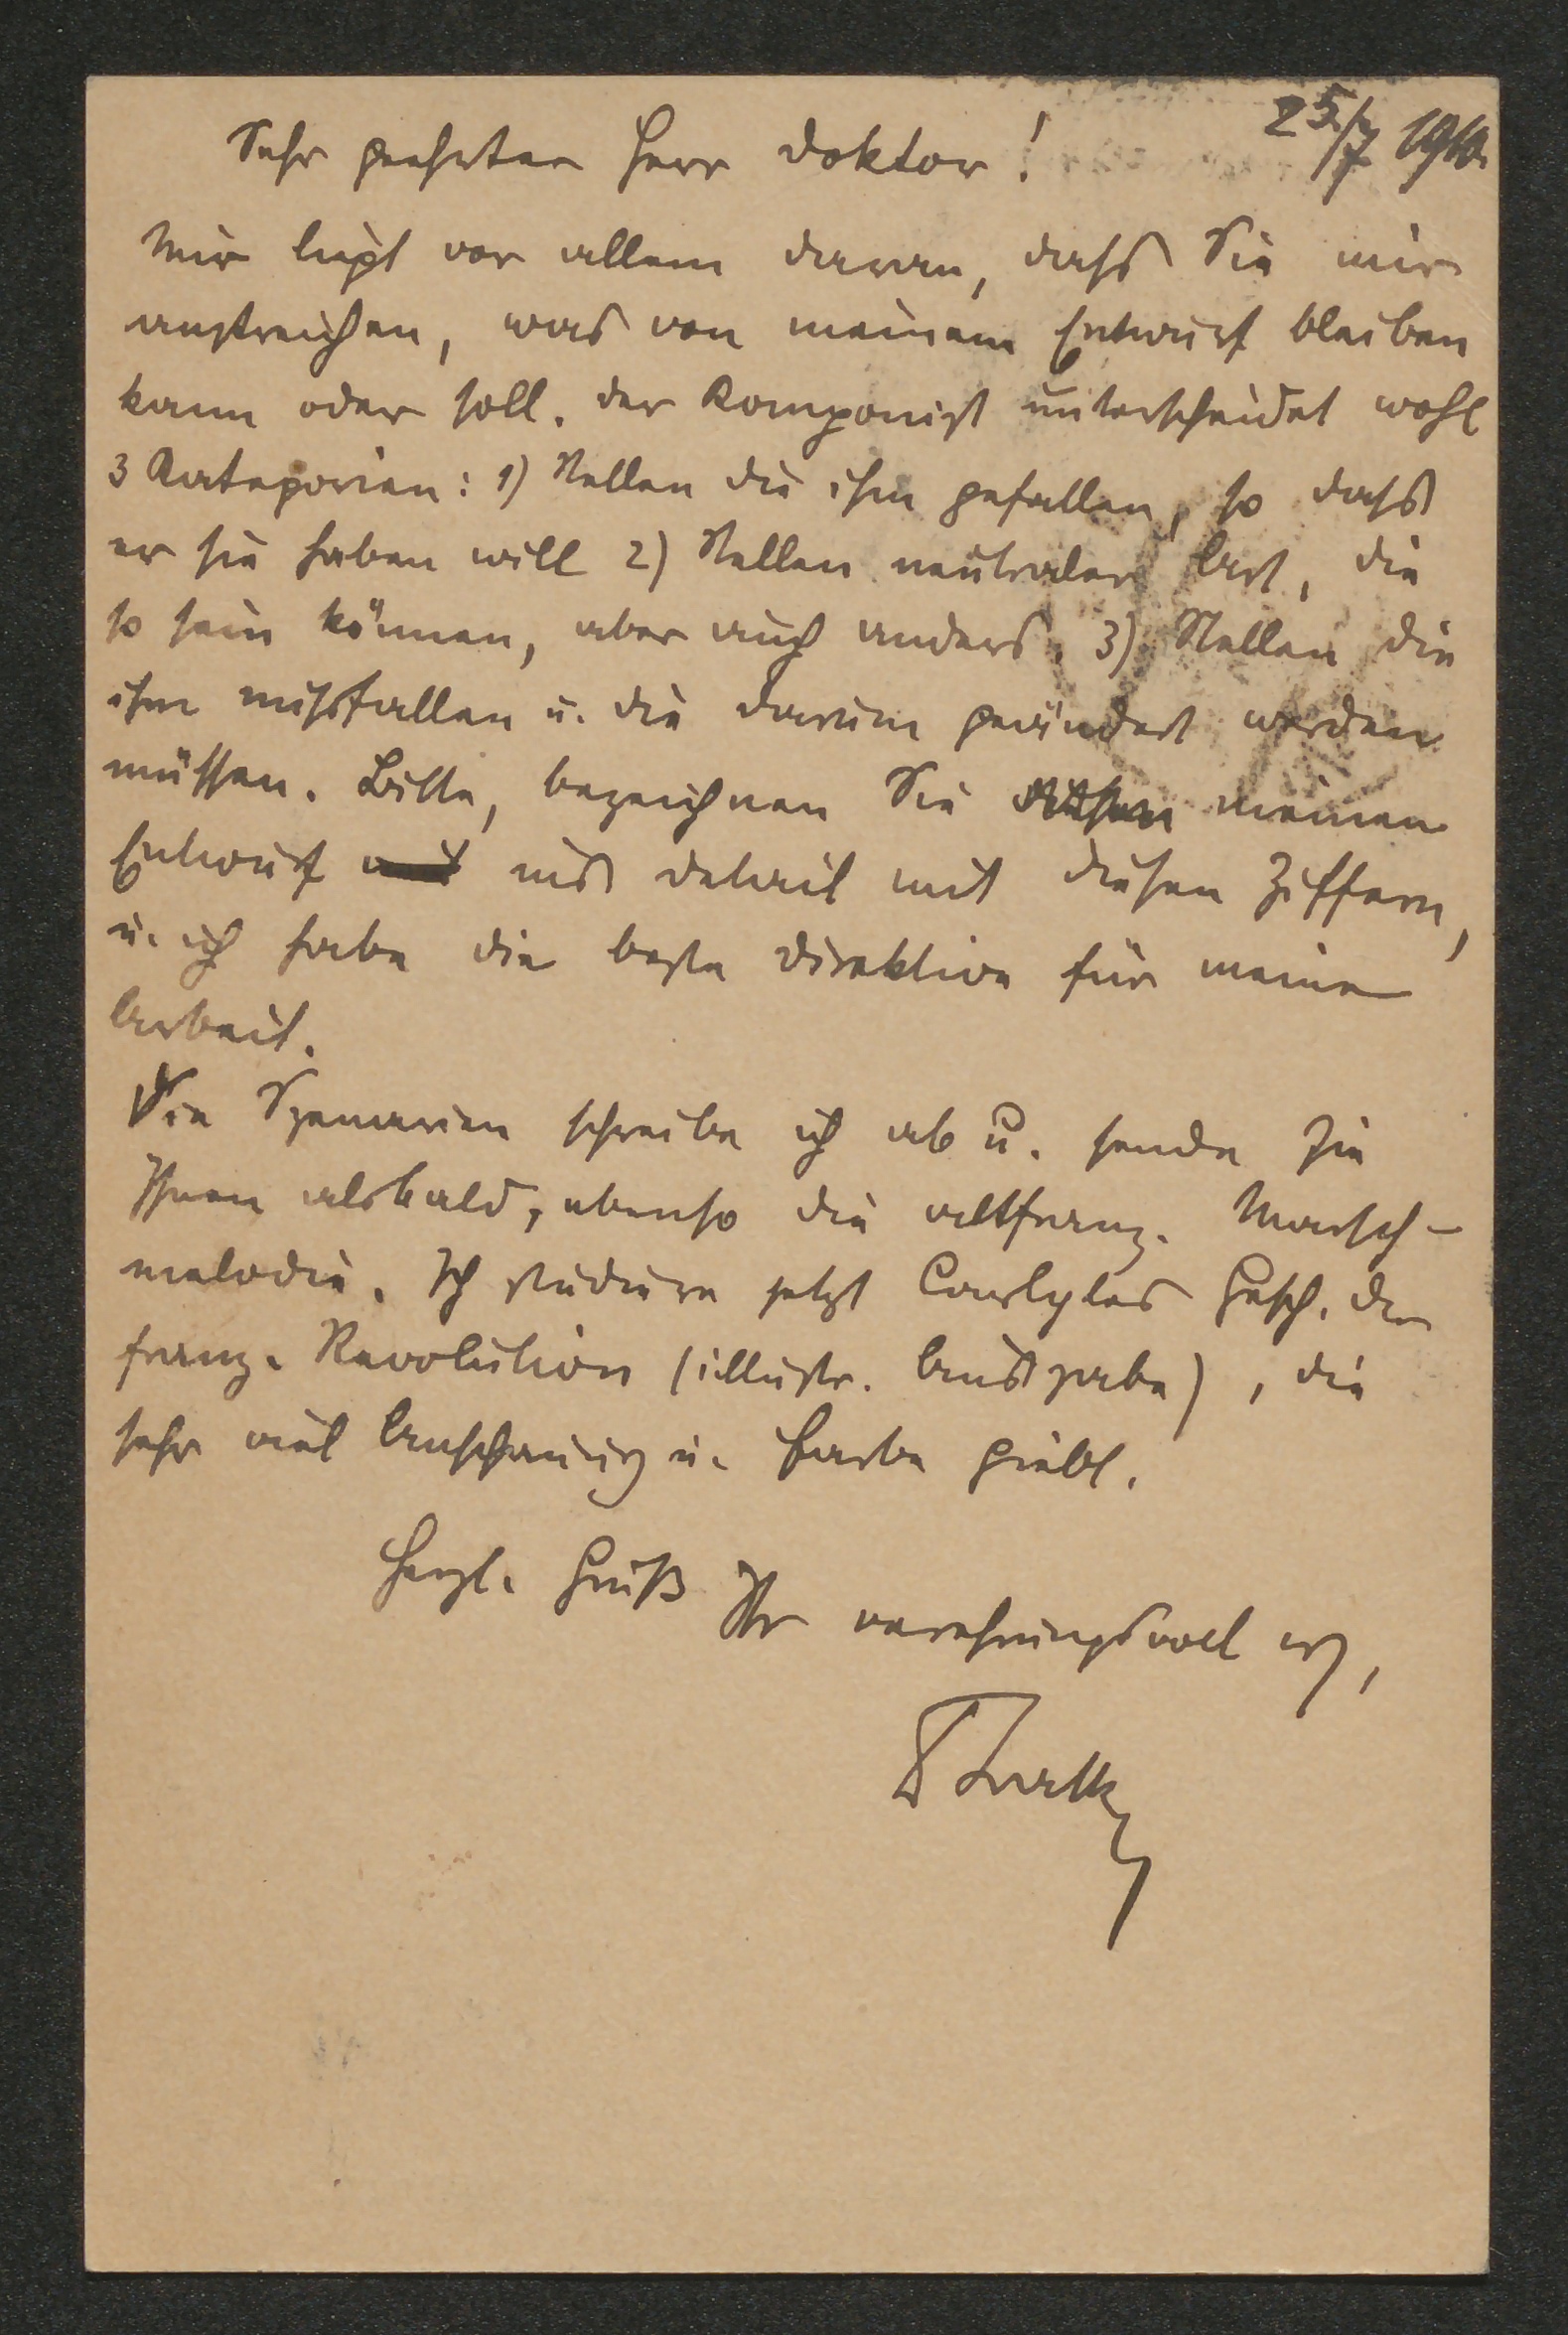 25/7 1910.
Sehr geehrter Herr Doktor!
Mir liegt vor allem daran, dass Sie mir
anstreichen, was von meinem Entwurf bleiben
kann oder soll. Der Komponist unterscheidet wohl
3 Kategorien: 1) Stellen die ihm gefallen, so dass
er sie haben will 2) Stellen neutraler Art, die
so sein können, aber auch anders, 3) Stellen die
ihm missfallen u. die darum geändert werden
müssen. Bitte, bezeichnen Sie meinen
Entwurf ins Detail mit diesen Ziffern,
u. ich habe die beste Direktive für meine
Arbeit.
Die Szenarien schreibe ich ab u. sende sie
Ihnen alsbald, ebenso die altfranz. Marsch-
melodie. Ich studiere jetzt Carlyles Gesch. der
franz. Revolution (illustr. Ausgabe), die
sehr viel Anschauung u. Farbe giebt.
Herzl. Gruß Ihr verehrungsvoll erg.,
Batka